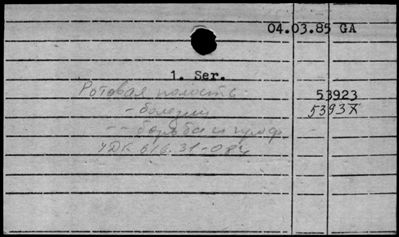 04.03.85 GA
1. Ser.
Ротовая полость 53923
- болезни 5393X
-- борьба и проф.
УДК 616.31-084